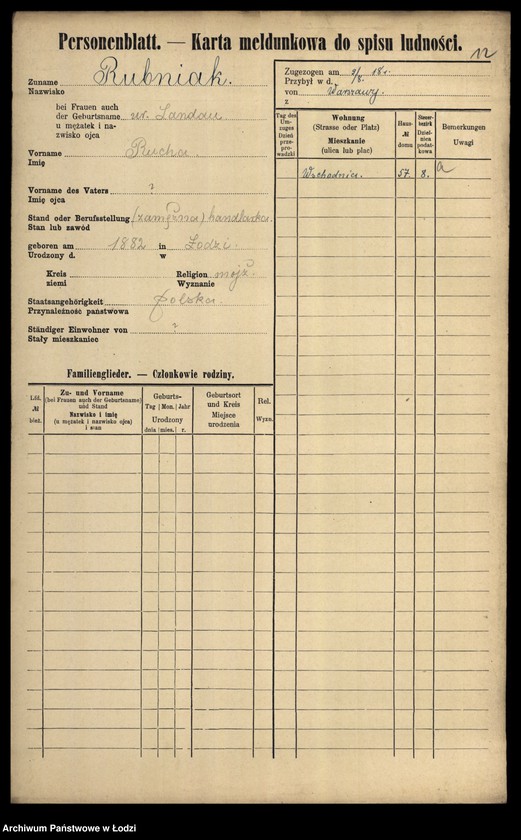 Personenblatt. — Karta meldunkowa do spisu ludności.
12
Zuname Rubniak.
Nazwisko
bei Frauen auch
der Geburtsname ur. Landau
u mężatek i na-
zwisko ojca
Vorname Rucha
Imię
Vorname des Vaters ?
Imię ojca
Stand oder Berufsstellung (zamężna) handlarka.
Stan lub zawód
geboren am 1882 in Łodzi.
Urodzony d. w
Kreis
ziemi
Religion mojż.
Wyznanie
Staatsangehörigkeit polska.
Przynależność państwowa
Ständiger Einwohner von ?
Stały mieszkaniec
Familienglieder. — Członkowie rodziny.
Lfd. № bież.
Zu- und Vorname
(bei Frauen auch der Geburtsname)
und Stand
Nazwisko i imię
(u mężatek i nazwisko ojca)
i stan
Geburts-
Tag Mon. Jahr
Urodzony
dnia mies. r.
Geburtsort
und Kreis
Miejsce
urodzenia
Rel.
Wyzn.
Zugezogen am
Przybył w d.
von Warszawy.
z
Tag des
Um-
zuges
Dzień
prze-
prowadzki
Wohnung
(Strasse oder Platz)
Mieszkanie
(ulica lub plac)
Haus-
№
domu
Steuer-
bezirk
Dziel-
nica
podat-
kowa
Bemerkungen
Uwagi
Wschodnia. 57. 8. a
Archiwum Państwowe w Łodzi